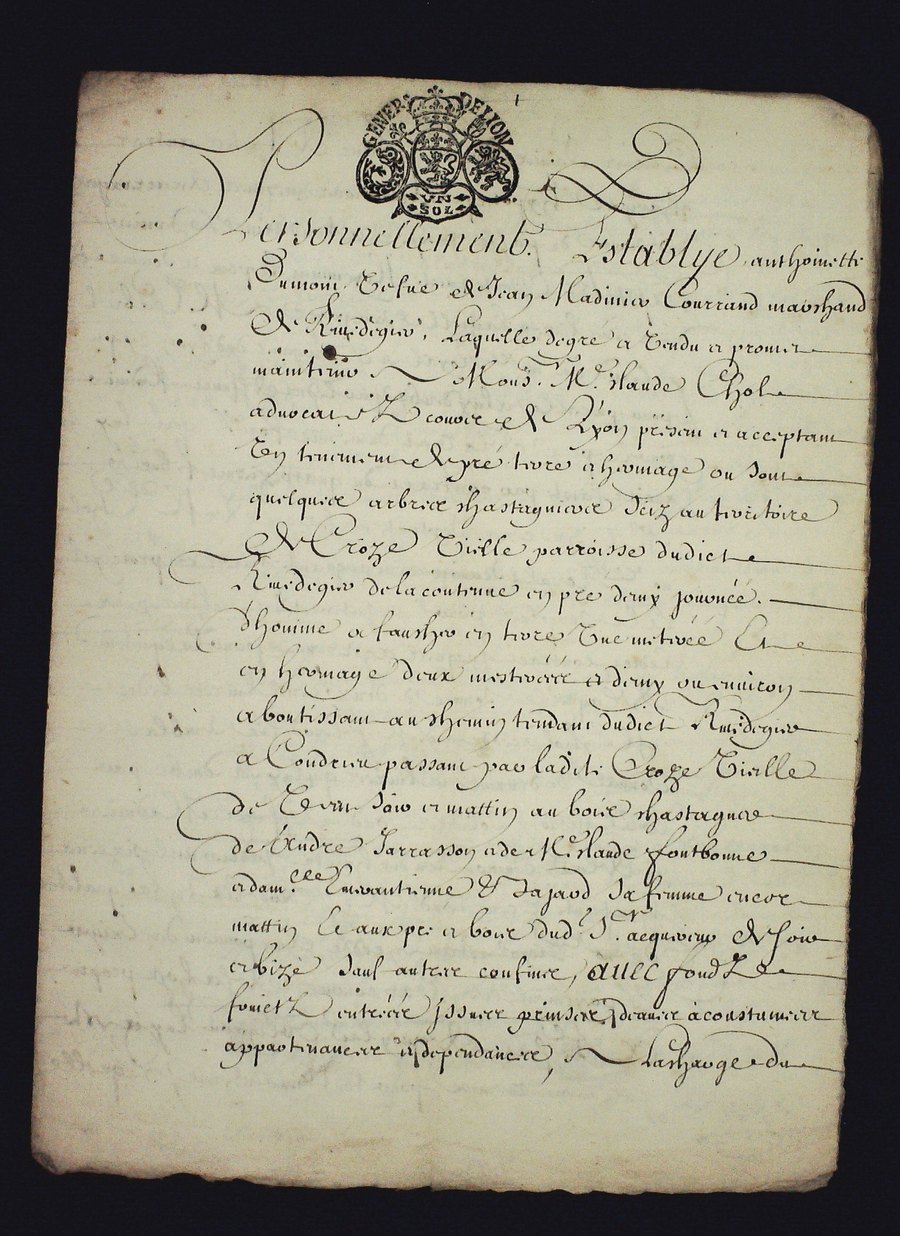 GENER DE LYON
UN
SOL
Personnellement Establye anthoinette
Dumoin vefve de Jean Madinier Courrand marchand
de Rivedegier, Laquelle degre a vendu et promet
maintenir A Mons.r M.e Claude Chol
advocat et de Lyon présent et acceptant
Un tenement de pré terre et hermage ou sont
quelques arbres chastagniers sciz au territoire
de Croze Vielle parroisse dudict
Rivedegier de la contenue en pre demy journéé
d'homme a faucher en terre Une meteréé Et
en hermage deux mesteréés et demy ou environ
aboutissant au chemin tendant dudict Rivedegier
a Condrieu passant par ladite Croze Vielle
de vent soir et mattin au boix chastagners
de André Jarrasson et de M.e Claude fontbonne
et dam.lle sa femme encor
mattin Le aux pre et boix dud.t S.r acquereur de soir
et bize sauf autres confines, avec fondz
entréés issues prinses, acoustumees
appartenances et dependances, A La charge du